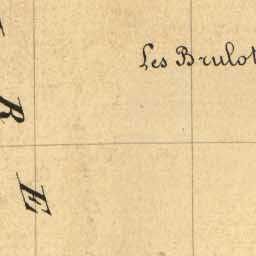 Les Brulot
R
E